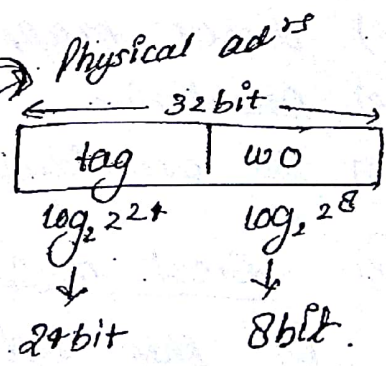 Physical adrs
32bit
tag wo
log₂ 2²⁴ log₂ 2⁸
24bit 8bit.